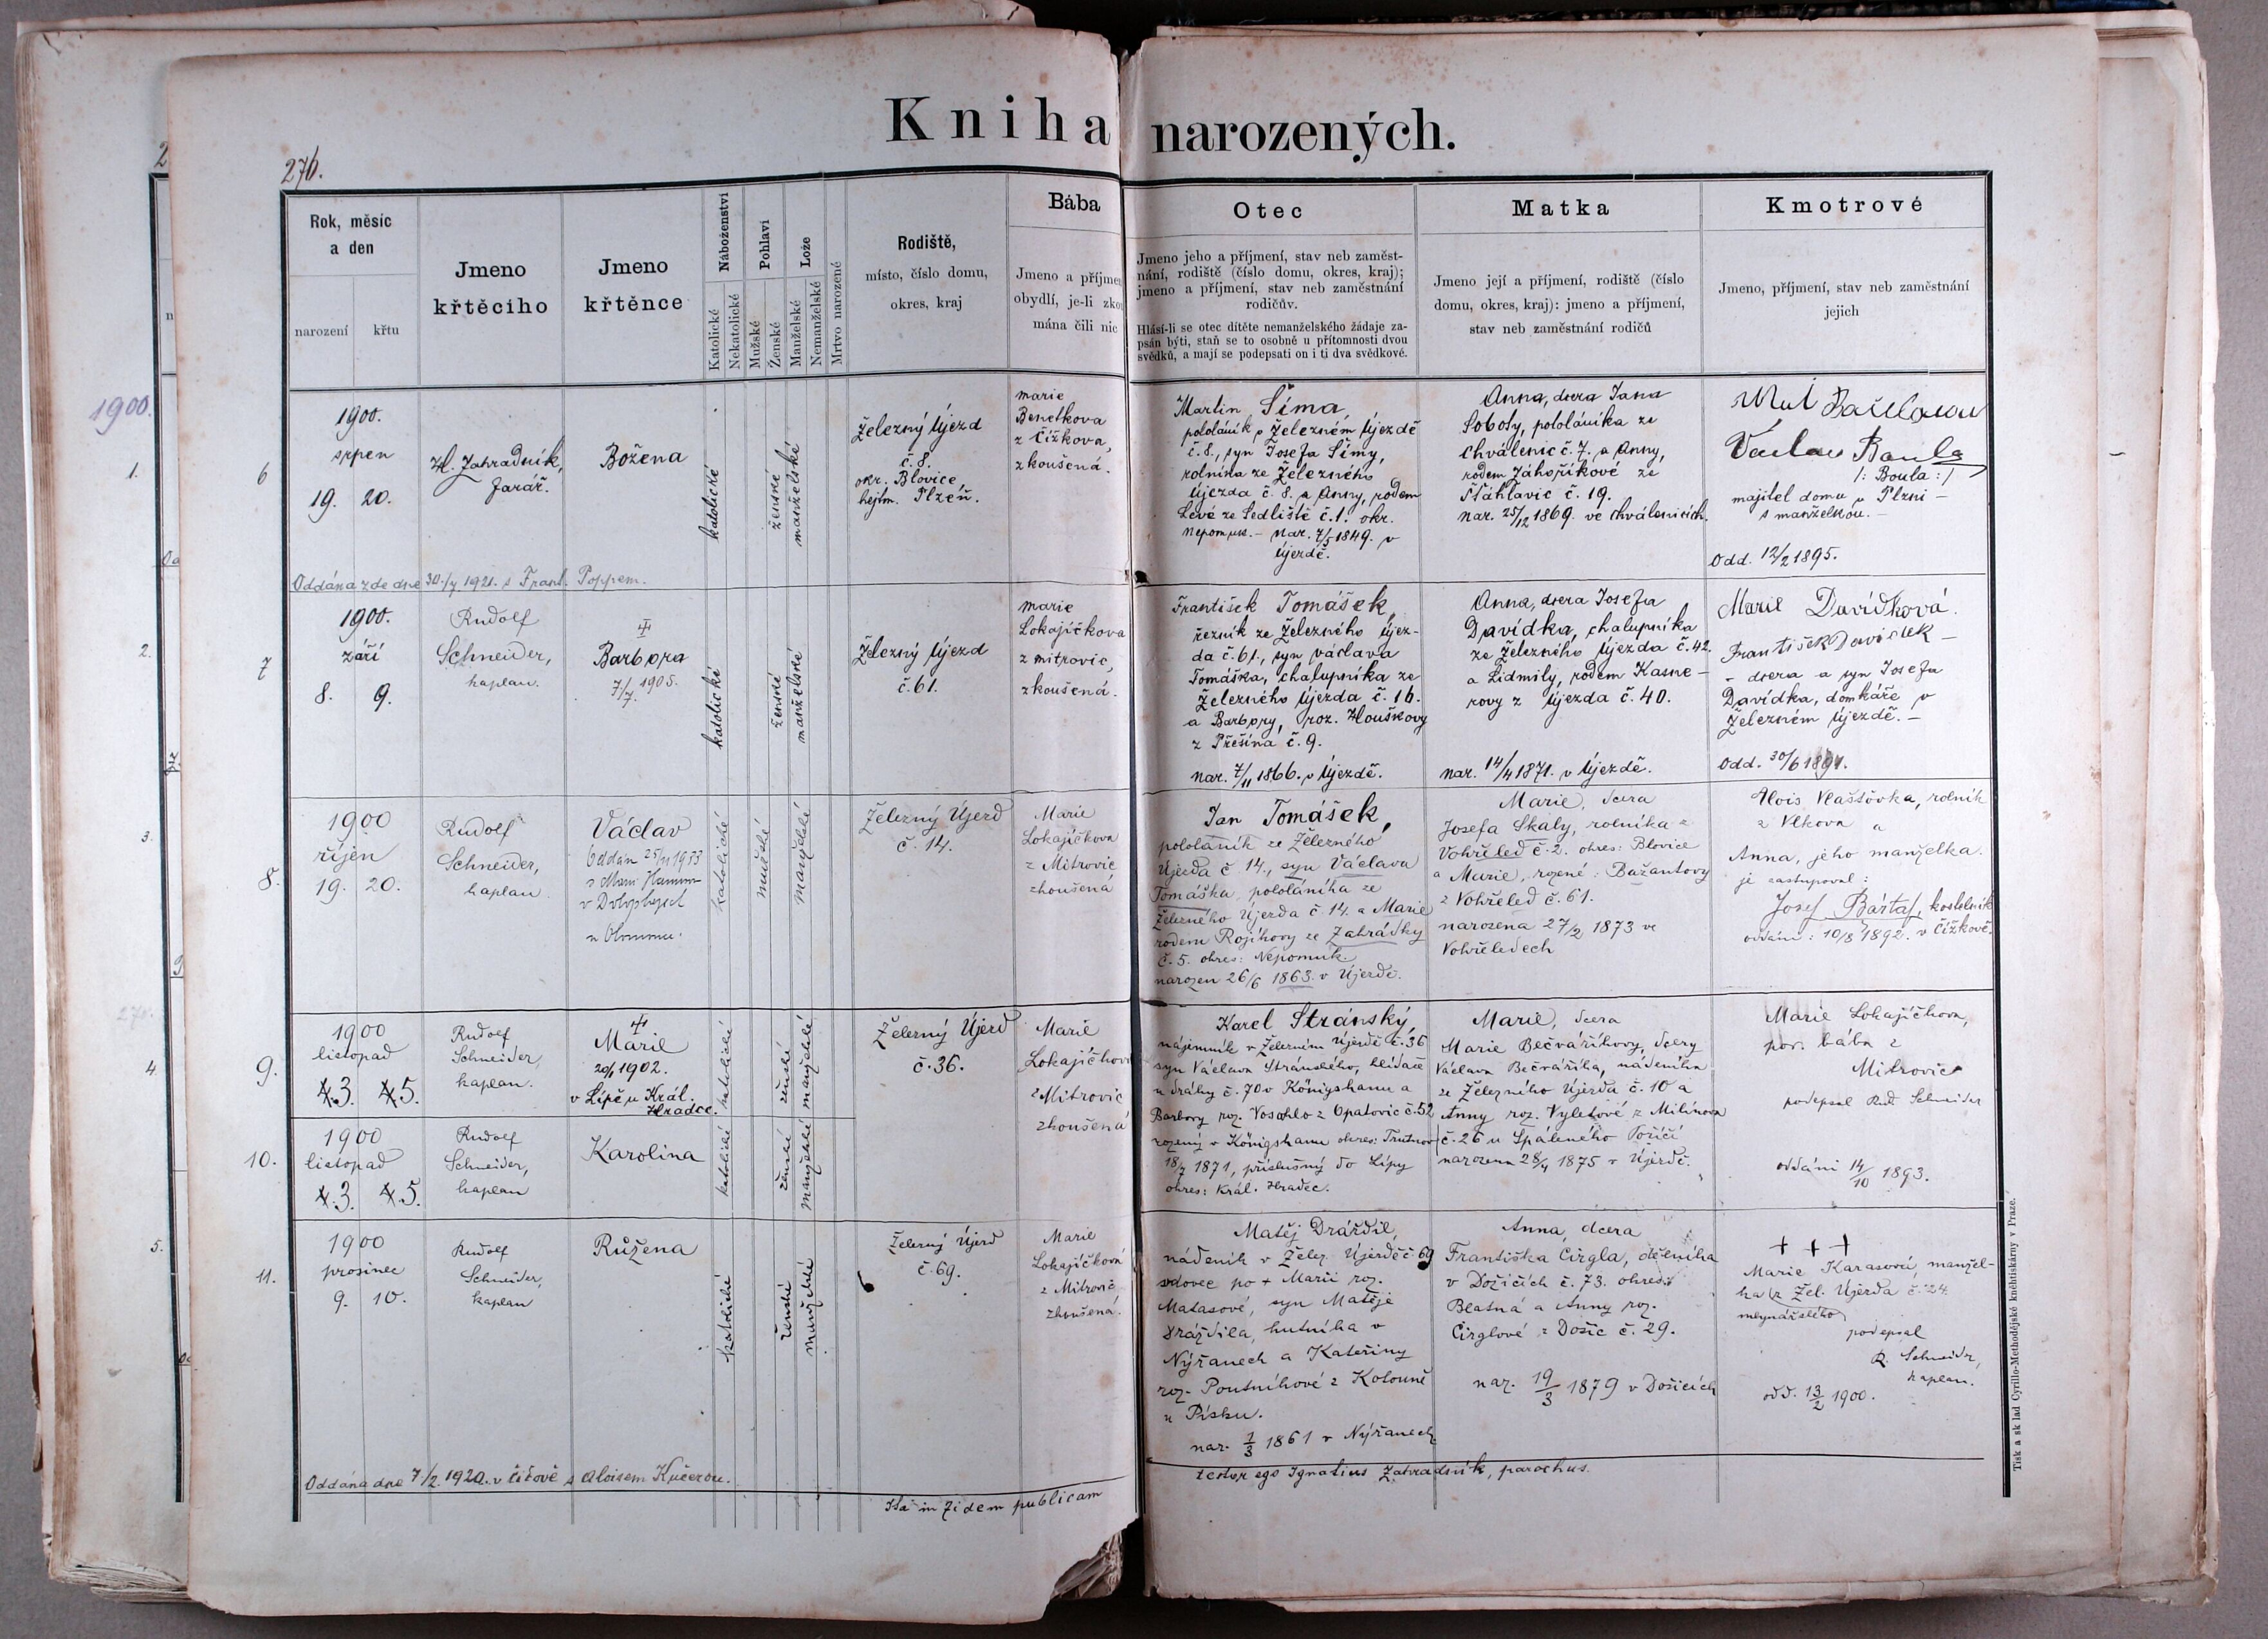 Kniha narozených.
276.
Rok, měsíc
a den
narození
křtu
Jmeno
křtěcího
Jmeno
křtěnce
Náboženství
Katolické
Nekatolické
Pohlaví
Mužské
Ženské
Lože
Manželské
Nemanželské
Mrtvo narozené
Rodiště,
místo, číslo domu,
okres, kraj
Bába
Jmeno a příjmen
obydlí, je-li zkou
mána čili nic
Otec
Jmeno jeho a příjmení, stav neb zaměst-
nání, rodiště (číslo domu, okres, kraj);
jmeno a příjmení, stav neb zaměstnání
rodičův.
Hlásí-li se otec dítěte nemanželského žádaje za-
psán býti, staň se to osobně u přítomnosti dvou
svědků, a mají se podepsati on i ti dva svědkové.
Matka
Jmeno její a příjmení, rodiště (číslo
domu, okres, kraj): jmeno a příjmení,
stav neb zaměstnání rodičů
Kmotrové
Jmeno, příjmení, stav neb zaměstnání
jejich
1900.
1.
2.
3.
4.
5.
6
1900.
srpen
19. 20.
Zahradník,
farář.
Božena
katolické
ženské
manželské
Železný Újezd
č. 8.
okr. Blovice,
hejtm. Plzeň.
Marie
Benetkova
z Čížkova,
zkoušená.
Martin Šíma,
pololáník v Železném Újezdě
č. 8., syn Josefa Šímy,
rolníka ze Železného
Újezda č. 8. a Anny, rodem
Levé ze Sedliště č. 1. okr.
Nepomuk. - Nar. 7/5 1849. v
Újezdě.
Anna, dcera Jana
Soboty, pololáníka ze
Chválenic č. 7. a Anny,
rodem Záhoříkové ze
Šťáhlavic č. 19.
nar. 25/12 1869. ve Chválenicích.
Václav Baula
/: Boula :/
majitel domu v Plzni -
s manželkou. -
Odd. 12/2 1895.
Oddána zde dne 30./7 1921. s Frant. Poppem.
7
1900.
září
8. 9.
Rudolf
Schneider,
kaplan.
Barbora
7/7. 1905.
katolické
ženské
manželské
Železný Újezd
č. 61.
Marie
Lokajíčkova
z Mitrovic,
zkoušená.
František Tomášek,
řezník ze Železného Újez-
da č. 61., syn Václava
Tomáška, chalupníka ze
Železného Újezda č. 16.
a Barbory, roz. Hlouškovy
z Přešína č. 9.
nar. 7/11 1866. v Újezdě.
Anna, dcera Josefa
Davídka, chalupníka
ze Železného Újezda č. 42.
a Lidmily, rodem Kasne-
rovy z Újezda č. 40.
nar. 14/4 1871. v Újezdě.
Marie Davídková.
František Davidek -
- dcera a syn Josefa
Davídka, domkáře v
Železném Újezdě. -
Odd. 30/6 1891.
8.
1900
říjen
19. 20.
Rudolf
Schneider,
kaplan
Václav
Oddán 25/11 1933
katolické
mužské
manželské
Železný Újezd
č. 14.
Marie
Lokajíčkova
z Mitrovic
zkoušená
Jan Tomášek,
pololáník ze Železného
Újezda č 14., syn Václava
Tomáška, pololáníka ze
Železného Újezda č. 14. a Marie
rodem Rojíkovy ze Zahrádky
č. 5. okres: Nepomuk.
narozen 26/6 1863. v Újezdě.
Marie, dcera
Josefa Skály, rolníka z
Vohřeled č. 2. okres: Blovice
a Marie, rozené: Bažantovy
z Vohřeled č. 61.
narozena 27/2 1873 ve
Vohřeledech
Alois Vlaštovka, rolník
z Vlkova a
Anna, jeho manželka.
je zastupoval:
Josef Bárta, kostelník
oddáni: 10/8 1892. v Čížkově.
9.
1900
listopad
3. 5.
Rudolf
Schneider,
kaplan.
Marie
20/1 1902.
v Lípě u Král.
Hradce.
katolické
ženské
manželské
Železný Újezd
č. 36.
Marie
Lokajíčkova
z Mitrovic
zkoušená
Karel Stránský,
nájemník v Železném Újezdě č. 36
syn Václava Stránského, hlídače
u dráhy č. 70 v Königshanu a
Barbory roz. Vosahlo z Opatovic č. 52
rozený v Königshanu okres: Trutnov
18/7 1871, příslušný do Lípy
okres: Král. Hradec.
Marie, dcera
Marie Bečváříkovy, dcery
Václava Bečváříka, nádeníka
ze Železného Újezda č. 10 a
Anny roz. Vyletové z Milínova
č. 26 u Spáleného Poříčí
narozena 28/4 1875 v Újezdě.
Marie Lokajíčkova,
por. bába z
Mitrovic
podepsal Rud. Schneider
oddáni 14/10 1893.
10.
1900
listopad
3. 5.
Rudolf
Schneider,
kaplan
Karolina
katolické
ženské
manželské
11.
1900
prosinec
9. 10.
Rudolf
Schneider,
kaplan
Růžena
katolické
ženské
manželské
Železný Újezd
č. 69.
Marie
Lokajíčková
z Mitrovic
zkoušená.
Matěj Dráždil,
nádeník v Želez. Újezdě č 69
vdovec po + Marii roz.
Matasové, syn Matěje
Dráždila, hutníka v
Nýřanech a Kateřiny
roz. Poutníkové z Kolouně
u Písku.
nar. 1/3 1861 v Nýřanech
Anna, dcera
Františka Cirgla, dělníka
v Dožicích č. 73. okres
Blatná a Anny roz.
Cirglové z Dožic č. 29.
nar. 19/3 1879 v Dožicích
+ + +
Marie Karasová, manžel-
ka z Žel. Újezda č. 24.
mlynářského
podepsal
R. Schneider,
kaplan.
odd. 13/2 1900.
Oddána dne 7/2. 1920. v Čížově s Aloisem Kučerou.
Ita in fidem publicam
testor ego Ignatius Zahradník, parochus.
Tisk a sklad Cyrillo-Methodějské kněhtiskárny v Praze.